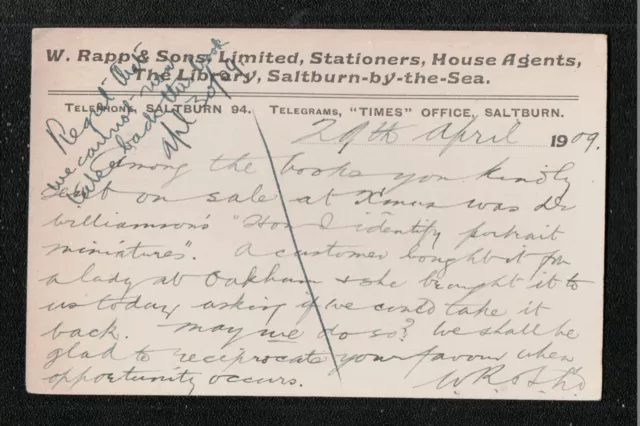 W. Rapp & Sons, Limited, Stationers, House Agents,
The Library, Saltburn-by-the-Sea.
Telephone, Saltburn 94. Telegrams, "Times" Office, Saltburn.
Regret that
we cannot now
take back this book
Apl 30/09
29th April 1909.
Among the books you kindly
sent on sale at Xmas was Dr
Williamson's "How I identify portrait
miniatures". A customer bought it for
a lady at Oakham & she brought it to
us today asking if we could take it
back. May we do so? We shall be
glad to reciprocate your favour when
opportunity occurs.
W.R. & S. Ld